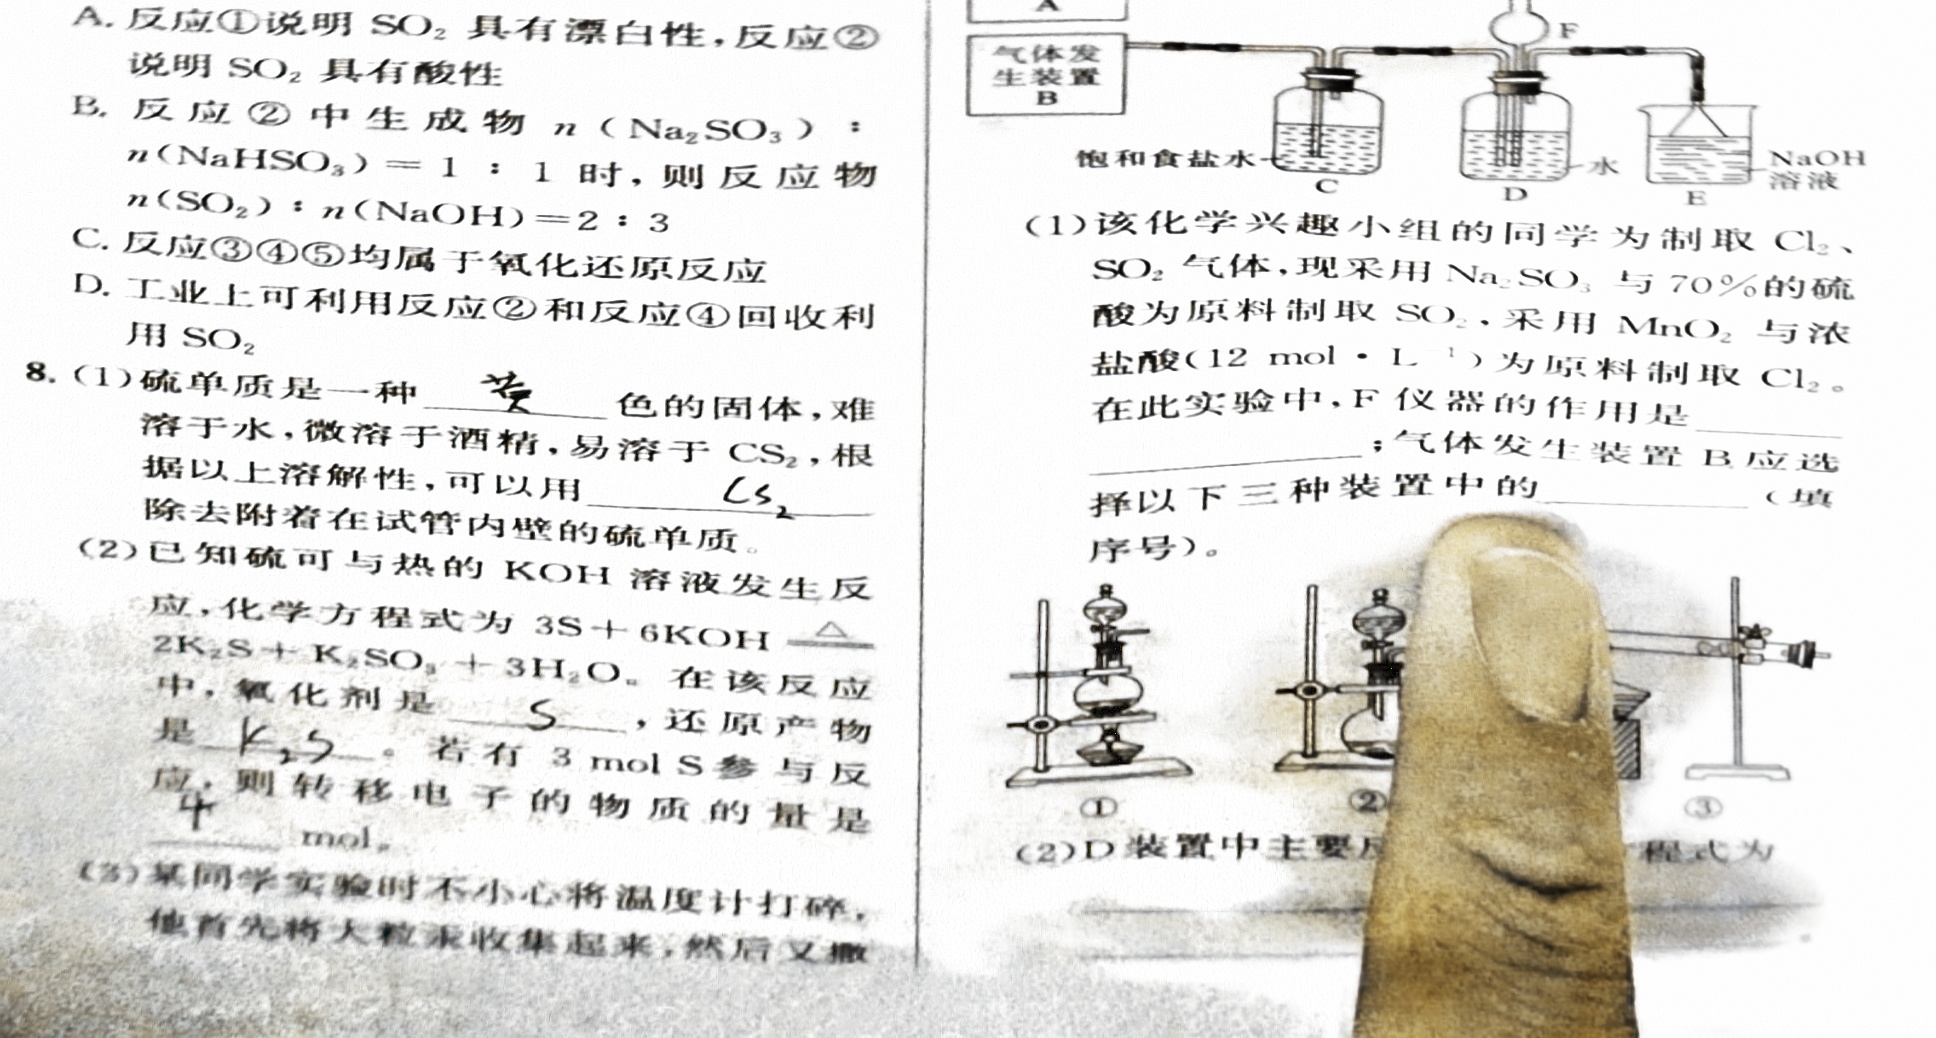 A. 反应①说明 SO₂ 具有漂白性,反应②
说明 SO₂ 具有酸性
B. 反应②中生成物 n(Na₂SO₃):
n(NaHSO₃)=1:1 时,则反应物
n(SO₂):n(NaOH)=2:3
C. 反应③④⑤均属于氧化还原反应
D. 工业上可利用反应②和反应④回收利
用 SO₂
8. (1)硫单质是一种 黄 色的固体,难
溶于水,微溶于酒精,易溶于 CS₂,根
据以上溶解性,可以用 CS₂
除去附着在试管内壁的硫单质。
(2)已知硫可与热的 KOH 溶液发生反
应,化学方程式为 3S+6KOH △
2K₂S+K₂SO₃+3H₂O。在该反应
中,氧化剂是 S ,还原产物
是 K₂S 。若有 3 mol S 参与反
应,则转移电子的物质的量是
4 mol。
(3)某同学实验时不小心将温度计打碎,
他首先将大粒汞收集起来,然后又撒
A
气体发
生装置
B
F
饱和食盐水
C
水
D
NaOH
溶液
E
(1)该化学兴趣小组的同学为制取 Cl₂、
SO₂ 气体,现采用 Na₂SO₃ 与 70%的硫
酸为原料制取 SO₂,采用 MnO₂ 与浓
盐酸(12 mol·L⁻¹)为原料制取 Cl₂。
在此实验中,F 仪器的作用是
;气体发生装置 B 应选
择以下三种装置中的 (填
序号)。
① ② ③
(2)D 装置中主要 程式为